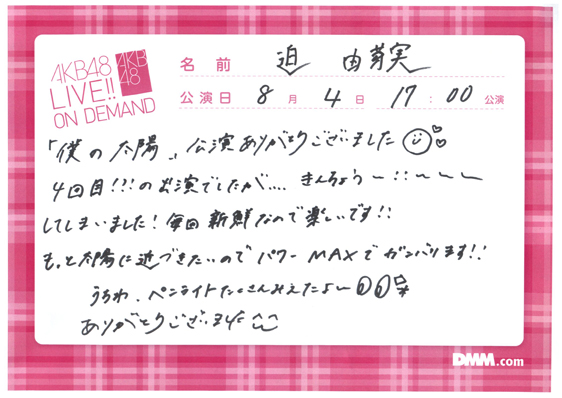 AKB48
LIVE!!
ON DEMAND
AKB
48
名前 迫 由芽実
公演日 8月4日 17:00公演
「僕の太陽」公演ありがとうございました
4回目!!!の公演でしたが.... きんちょうー!!~~~
してしまいました!毎回新鮮なので楽しいです!!
もっと太陽に近づきたいのでパワーMAXでガンバります!!
うちわ、ペンライトたくさんみえたよ~
ありがとうございました^^
DMM.com